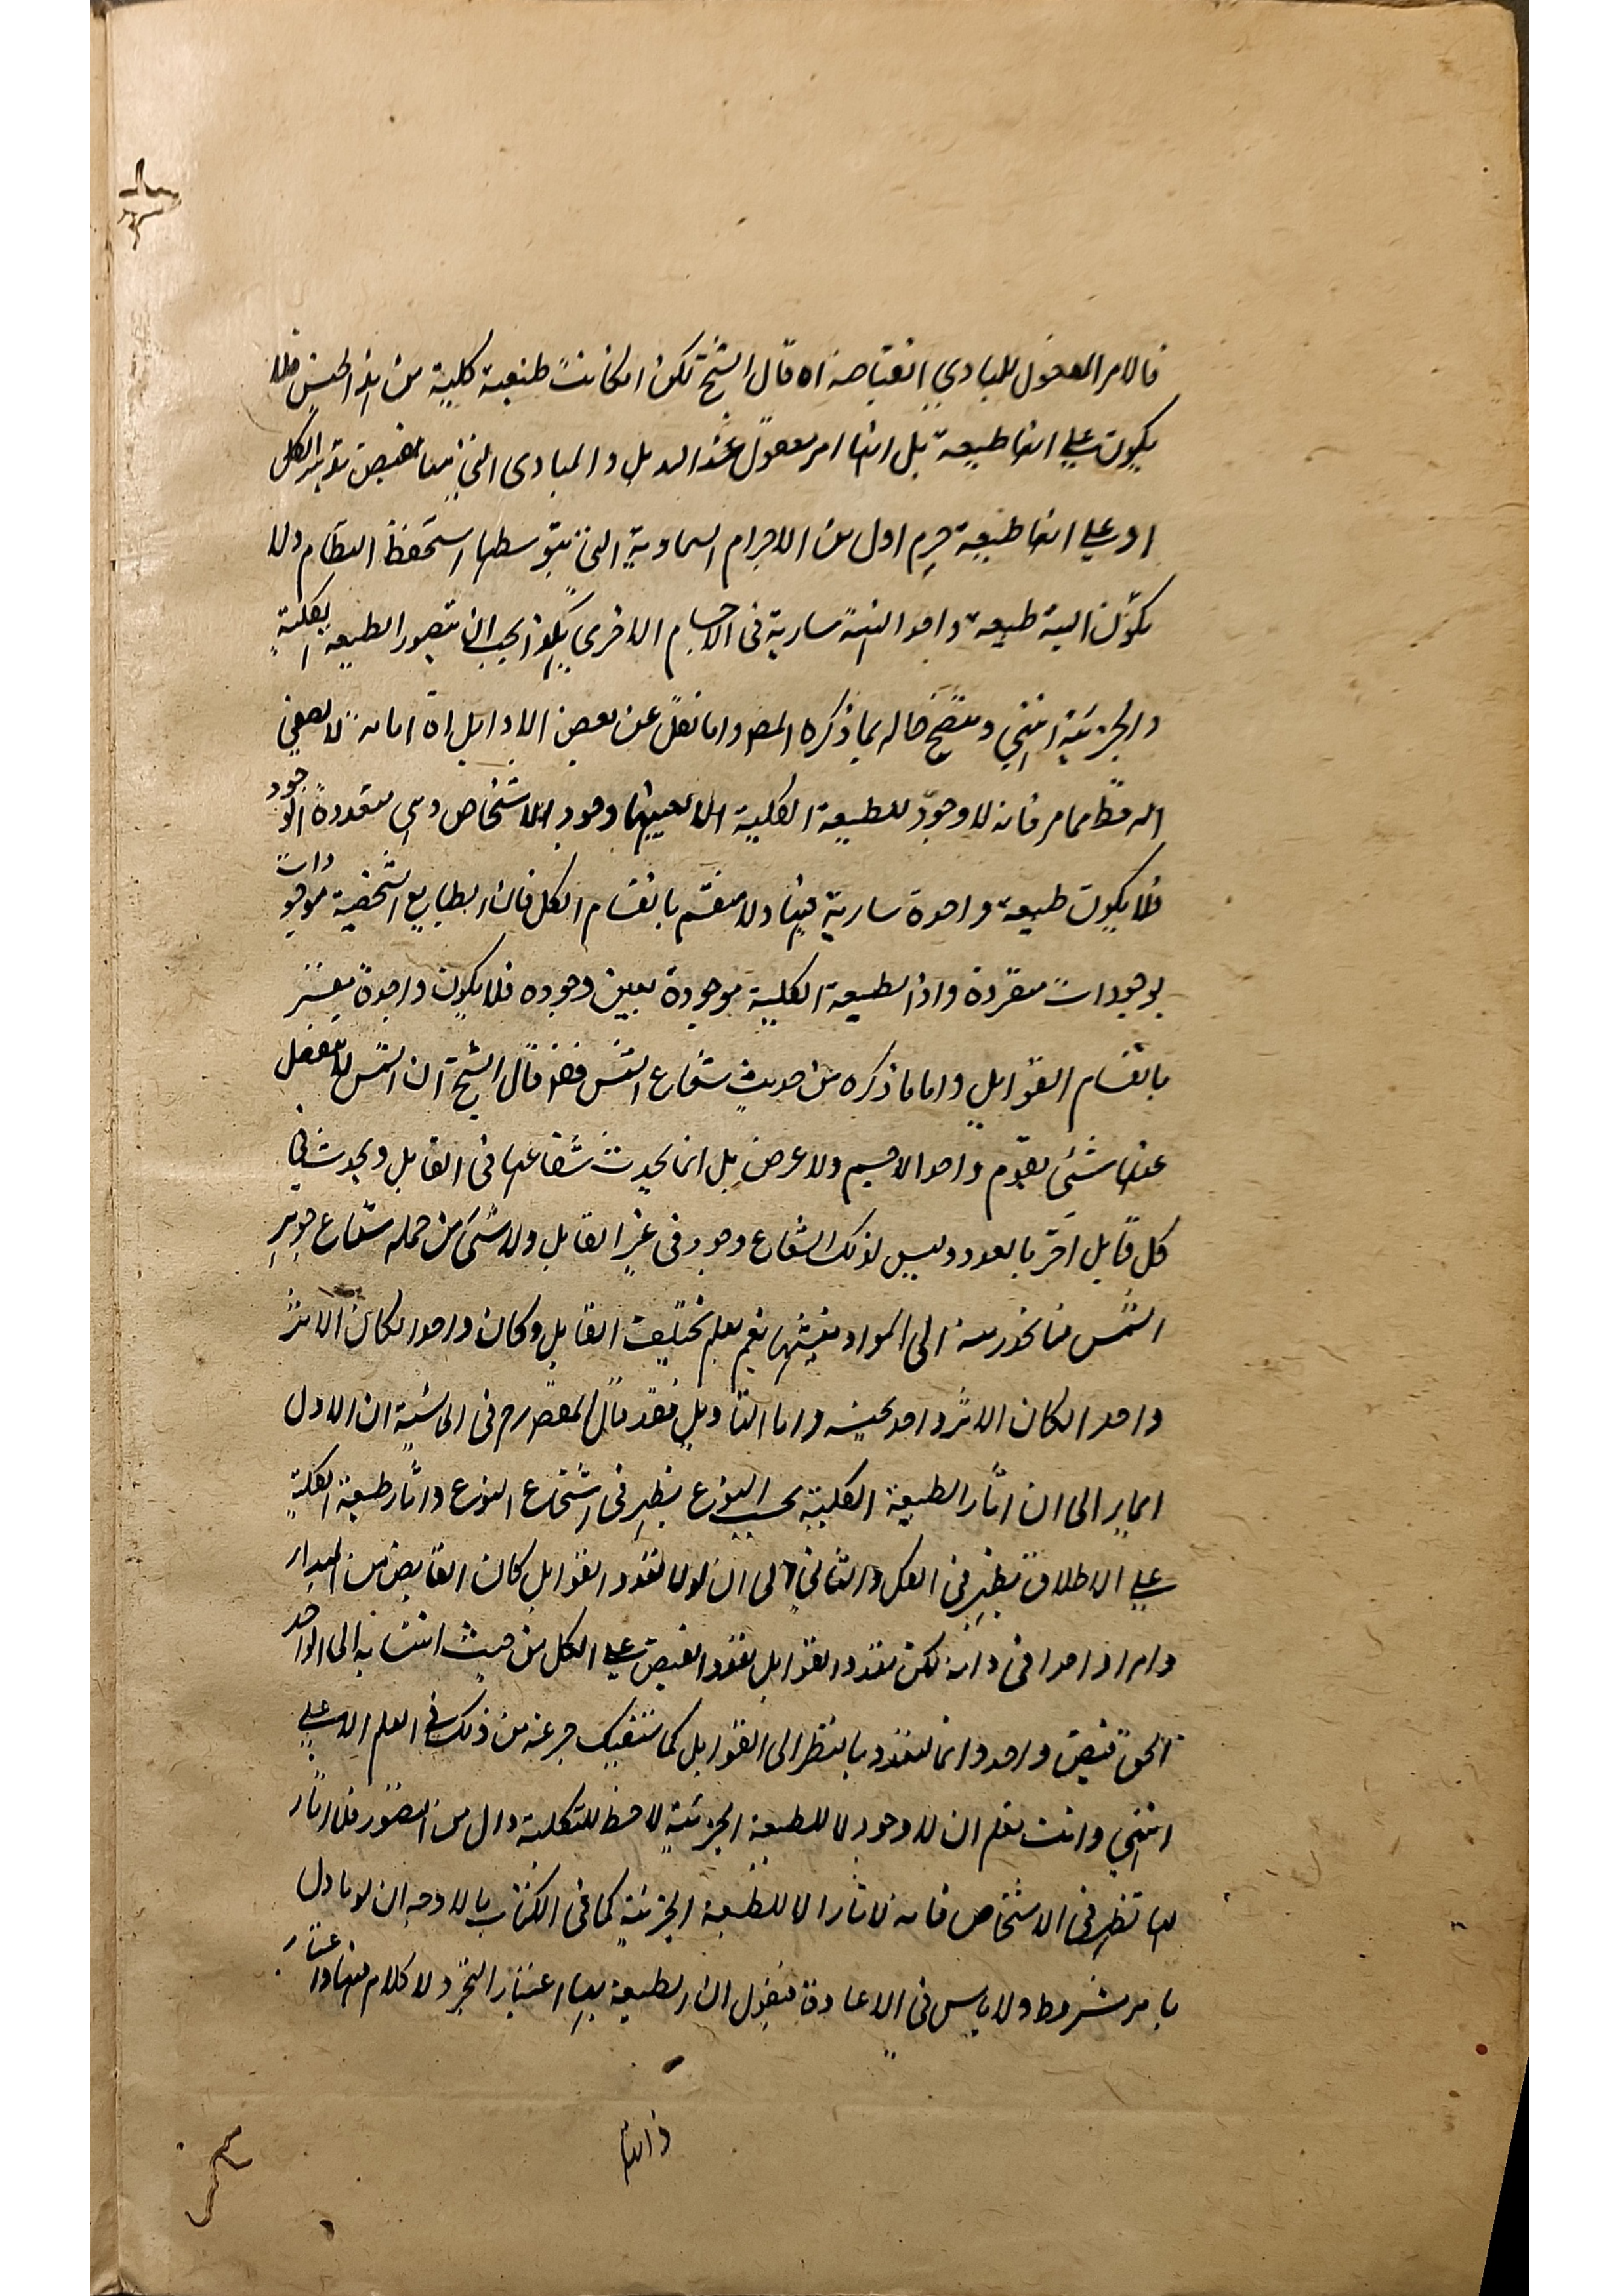 فالامر المعقول للمبادي اقتباصه اه قال الشيخ لكن ان كانت طبيعة كلية من هذا الجنس فلا
يكون على انها طبيعة بل انها امر معقول عند الاول والمبادي التي منها يفيض تدبير الكل
او على انها طبيعة جرم اول من الاجرام السماوية التي بتوسطها استحفظ النظام ولا
يكون البتة طبيعة واحدة سارية في الاجسام الاخرى هكذا يجب ان تتصور الطبيعة الكلية
والجزئية انتهي ويتضح حاله بما ذكره المص واما نقل عن بعض الاوايل اه اما
مما مر فانه لا وجود للطبيعة الكلية الا بعينها وجود الاشخاص وهي متعددة الوجود
فلا يكون طبيعة واحدة سارية فيها ولا منقسم بانقسام الكل فان الطبايع الشخصية موجودات
بوجودات متفردة واذا الطبيعة الكلية موجودة بعين وجوده فلا يكون واحدة
بانقسام القوابل واما ما ذكره من حديث شعاع الشمس فقد قال الشيخ ان الشمس لا ينفصل
عنها شئي يقوم واحد الا جسم ولا عرض بل انما يحدث شعاعها في القابل ويحدث في
كل قابل آخر بالعدد وليس لذلك الشعاع وجود في غير القابل ولا شئ من جملة شعاع جوهر
الشمس انحدر منه الى المواد يغشيها نعم لو لم يختلف القابل وكان واحدا لكان الاثر
واحدا لكان الاثر واحد بحينه واما التأويل فقد قال المص رح في الحاشية ان الاول
ايماء الى ان اثار الطبيعة الكلية بحسب النوع يظهر في اشخاص النوع واثار طبيعة الكلية
على الاطلاق يظهر في الكل والثاني الى ان لولا تعدد القوابل كان الفايض من المبداء
وامرا واحدا في ذاته لكن تعدد القوابل تعدد الفيض على الكل من حيث انتسابه الى الواحد
الحق فيض واحد وانما تعدد بالنظر الى القوابل كما سنفيك جرعة من ذلك في العلم الاعلى
انتهي وانت تعلم ان لا وجود الا للطبيعة الجزئية لا حظ للكلية من التصور فلا اثار
لها تظهر في الاشخاص فانه لا اثار الا للطبيعة الجزئية كما في الكتاب بالاوجه ان لو يأول
بامر شرط ولا باس في الاعادة فنقول ان الطبيعة لها اعتبار التجرد لا كلام فيها واعتبار
ذاتها